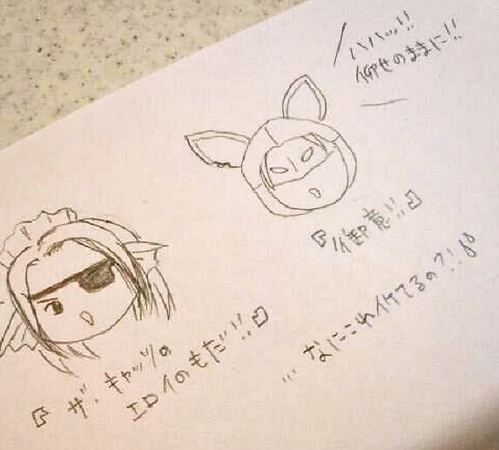 ハハッ!!
仰せのままに!!
『御意!!』
『ザ・キャッツの
エロイのもだ!!』
…なにこれイケてるの?!